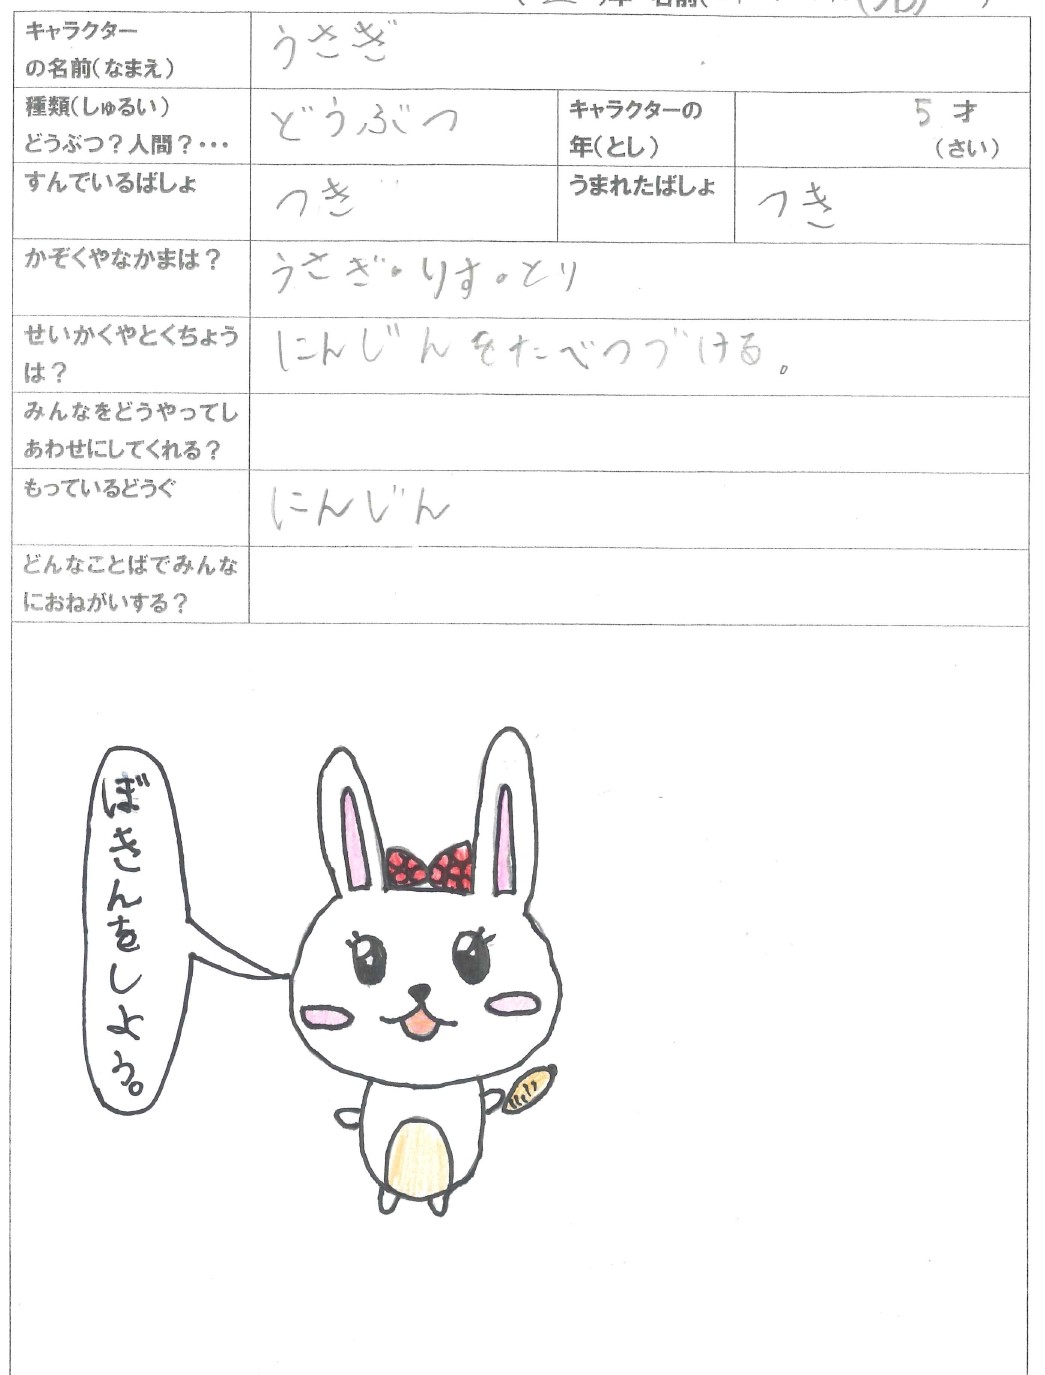 キャラクター
の名前(なまえ)
うさぎ
種類(しゅるい)
どうぶつ？人間？･･･
どうぶつ
キャラクターの
年(とし)
5 才
(さい)
すんでいるばしょ
つき
うまれたばしょ
つき
かぞくやなかまは？
うさぎ・りす・とり
せいかくやとくちょう
は？
にんじんをたべつづける。
みんなをどうやってし
あわせにしてくれる？
もっているどうぐ
にんじん
どんなことばでみんな
におねがいする？
ぼきんをしよう。